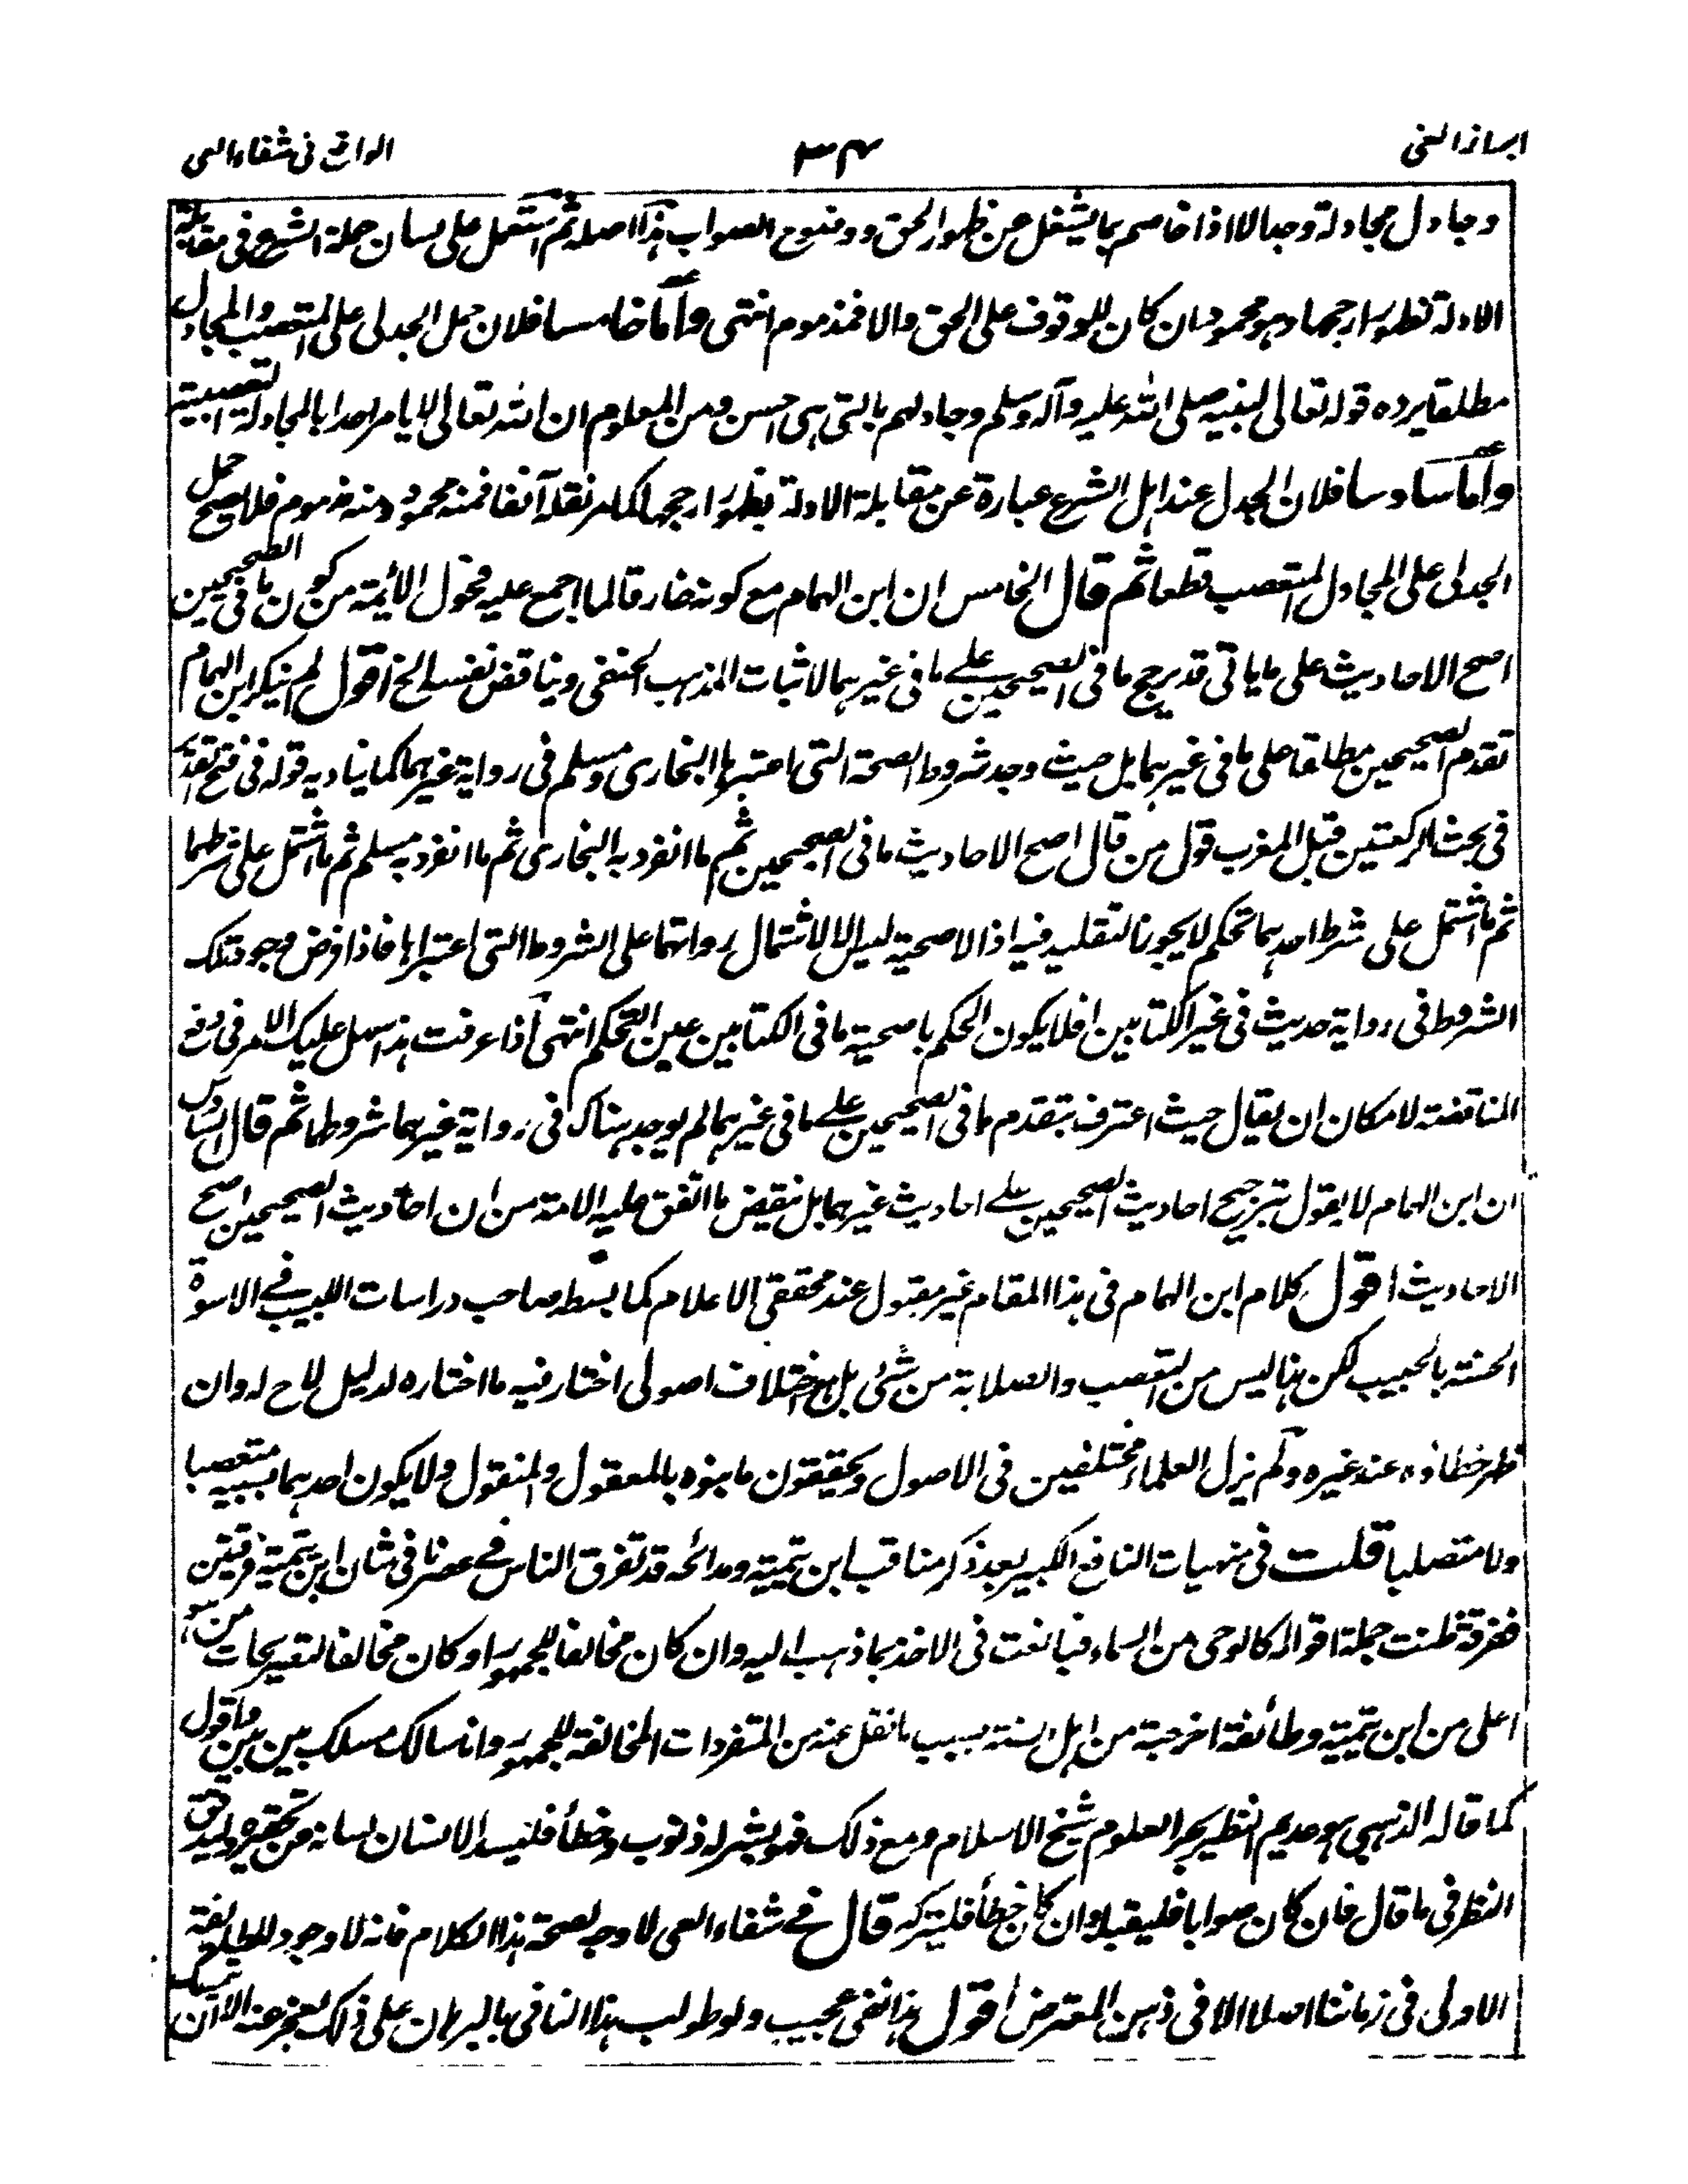 ابراز الغى
٣٤
الواقع فى شفاء العى
وجادل مجادلة وجدالا اذا خاصم بما يشغل عن ظهور الحق ووضوح الصواب هذا اصله ثم استعمل على لسان حملة الشرع فى مقابلة
الادلة لظهور ارجحها وهو محمود ان كان للوقوف على الحق والا فمذموم انتهى وأما خامسا فلان حمل الجدلى على المتعصب والمجادل
مطلقا يرده قوله تعالى لنبيه صلى الله عليه وآله وسلم وجادلهم بالتى هى احسن ومن المعلوم ان الله تعالى لا يامر احدا بالمجادلة التعصبية
وأما سادسا فلان الجدل عند اهل الشرع عبارة عن مقابلة الادلة بظهور ارجحها كما مر نقله آنفا فمنه محمود ومنه مذموم فلا يصح حمل
الجدلى على المجادل المتعصب قطعا ثم قال الخامس ان ابن الهمام مع كونه خارقا لما اجمع عليه فحول الائمة من كون ما فى الصحيحين
اصح الاحاديث على ما ياتى قد يرجح ما فى الصحيحين على ما فى غيرهما لاثبات المذهب الحنفى ويناقض نفسه الخ اقول لم ينكر ابن الهمام
تقدم الصحيحين مطلقا على ما فى غيرهما بل حيث وجدت شروط الصحة التى اعتبرها البخارى ومسلم فى رواية غيرهما كما ينادیه قوله فى فتح القدير
فى بحث الركعتين قبل المغرب قول من قال اصح الاحاديث ما فى الصحيحين ثم ما انفرد به البخارى ثم ما انفرد به مسلم ثم ما اشتمل على شرطهما
ثم ما اشتمل على شرط احدهما تحكم لا يجوز التقليد فيه اذ الاصحية ليس الا لاشتمال رواتهما على الشروط التى اعتبراها فاذا فرض وجود تلك
الشروط فى رواية حديث فى غير الكتابين افلا يكون الحكم باصحية ما فى الكتابين عين التحكم انتهى اذا عرفت هذا سهل عليك الامر فى دفع
المناقضة لامكان ان يقال حيث اعترف بتقدم ما فى الصحيحين على ما فى غيرهما لم يوجد هناك فى رواية غيرهما شروطهما ثم قال السادس
ان ابن الهمام لا يقول بترجيح احاديث الصحيحين على احاديث غيرهما بل نقيض ما اتفق عليه الامة من ان احاديث الصحيحين اصح
الاحاديث اقول كلام ابن الهمام فى هذا المقام غير مقبول عند محققى الاعلام كما بسطه صاحب دراسات اللبيب فى الاسوة
الحسنة بالحبيب لكن هذا ليس من التعصب والصلابة من شئ بل هو اختلاف اصولى اختار فيه ما اختاره لدليل لاح له وان
ظهر خطاؤه عند غيره ولم يزل العلماء مختلفين فى الاصول ويحققون ما بنوه بالمعقول والمنقول ولا يكون احدهما بسببه متعصبا
ولا متصلبا قلت فى منهيات النافع الكبير بعد ذكر مناقب ابن تيمية ومدائحه قد تفرق الناس فى عصرنا فى شان ابن تيمية فرقتين
ففرقة ظنت جملة اقواله كالوحى من السماء فبالغت فى الاخذ بما ذهب اليه وان كان مخالفا للجمهور او كان مخالفا لتصريحات من هو
اعلى من ابن تيمية وطائفة اخرجته من اهل السنة بسبب ما نقل عنه من المتفردات المخالفة للجمهور وانا سالك مسلك بين بين واقول
كما قاله الذهبى هو عديم النظير بحر العلوم شيخ الاسلام ومع ذلك فهو بشر له ذنوب وخطأ فليمسك الانسان لسانه من تحقيره وليدقق
النظر فى ما قال فان كان صوابا فليقبله وان كان خطأ فليتركه قال فى شفاء العى لا وجه لصحة هذا الكلام فانه لا وجود للطائفة
الاولى فى زماننا اصلا الا فى ذهن المعترض اقول هذا نفى عجيب ولو طولب هذا النافى بالبرهان على ذلك لعجز عنه الآن